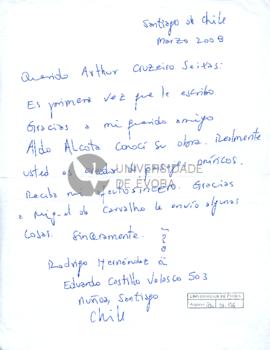 Santiago de Chile
Marzo 2009
Querido Arthur Cruzeiro Seixas:
Es primera vez que le escribo.
Gracias a mi querido amigo
Aldo Alcota conocí su obra. Realmente
usted es creador de oníricos.
Reciba mi afecto sincero. Gracias
a Miguel de Carvalho le envío algunas
cosas. Sinceramente.
Rodrigo Hernández
Eduardo Castillo Velasco 503
Ñuñoa, Santiago
Chile
UNIVERSIDADE
DE ÉVORA